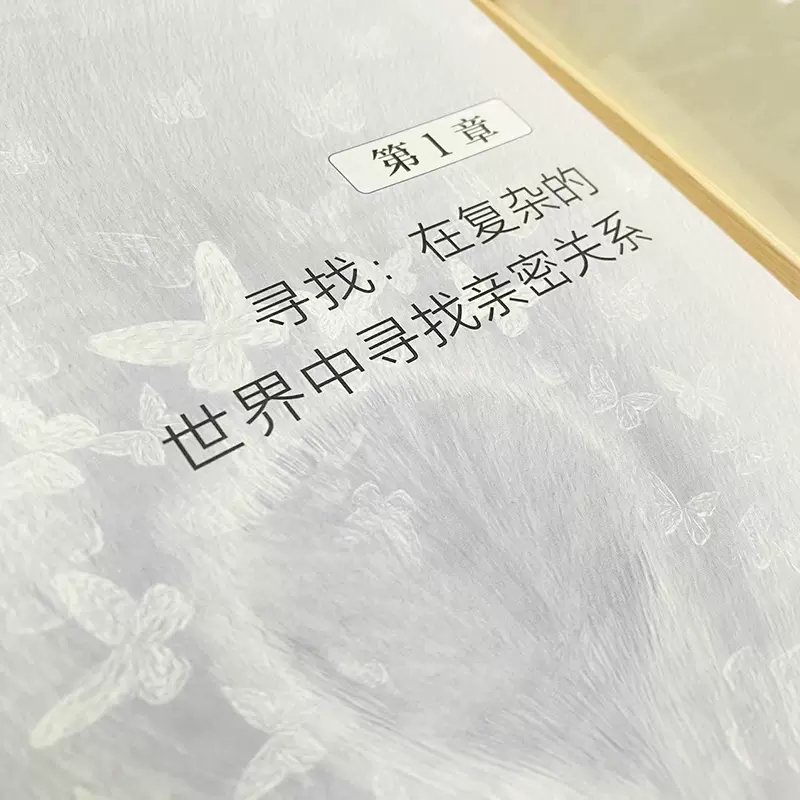 第1章
寻找：在复杂的
世界中寻找亲密关系